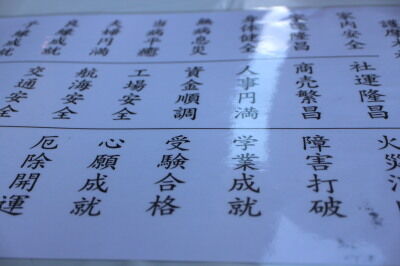 家内安全
家業隆昌
身体健全
無病息災
当病平癒
夫婦円満
良縁成就
社運隆昌
商売繁昌
人事円満
資金順調
工場安全
航海安全
交通安全
火災
障害打破
学業成就
受験合格
心願成就
厄除開運